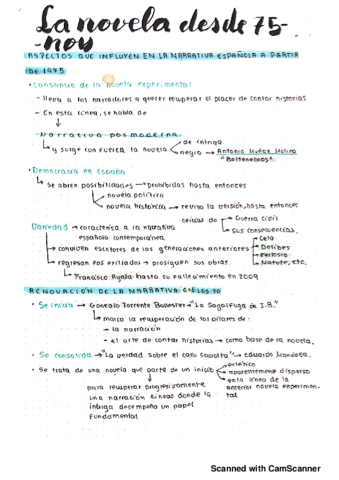 La novela desde 75-
-hoy
ASPECTOS QUE INFLUYEN EN LA NARRATIVA ESPAÑOLA A PARTIR
DE 1975
• Cansancio de la novela experimental
- lleva a los narradores a querer recuperar el placer de contar historias
- En esta línea, se habla de
Narrativa posmoderna
y surge con fuerza la novela de intriga
negra → Antonio Muñoz Molina
"Beltenebros"
• Democracia en España
se abren posibilidades → prohibidas hasta entonces
novela política
novela histórica → revisa la versión, hasta entonces
oficial de Guerra Civil
sus consecuencias.
Variedad → característica a la narrativa
española contemporánea
conviven escritores de las generaciones anteriores
Cela
Delibes
Ferlosio
Matute, etc.
regresan los exiliados → prosiguen sus obras
Francisco Ayala hasta su fallecimiento en 2009
RENOVACIÓN DE LA NARRATIVA EN LOS 70
• Se inicia → Gonzalo Torrente Ballester → "La Saga/Fuga de J.B."
marca la recuperación de los pilares de:
- la narración
- el arte de contar historias → como base de la novela.
• Se consolida → "La verdad sobre el caso Savolta" → Eduardo Mendoza.
• Se trata de una novela que parte de un inicio
aparentemente disperso
en la línea de la
anterior novela experimen-
tal
para recuperar progresivamente
una narración lineal donde la
intriga desempeña un papel
fundamental
Scanned with CamScanner